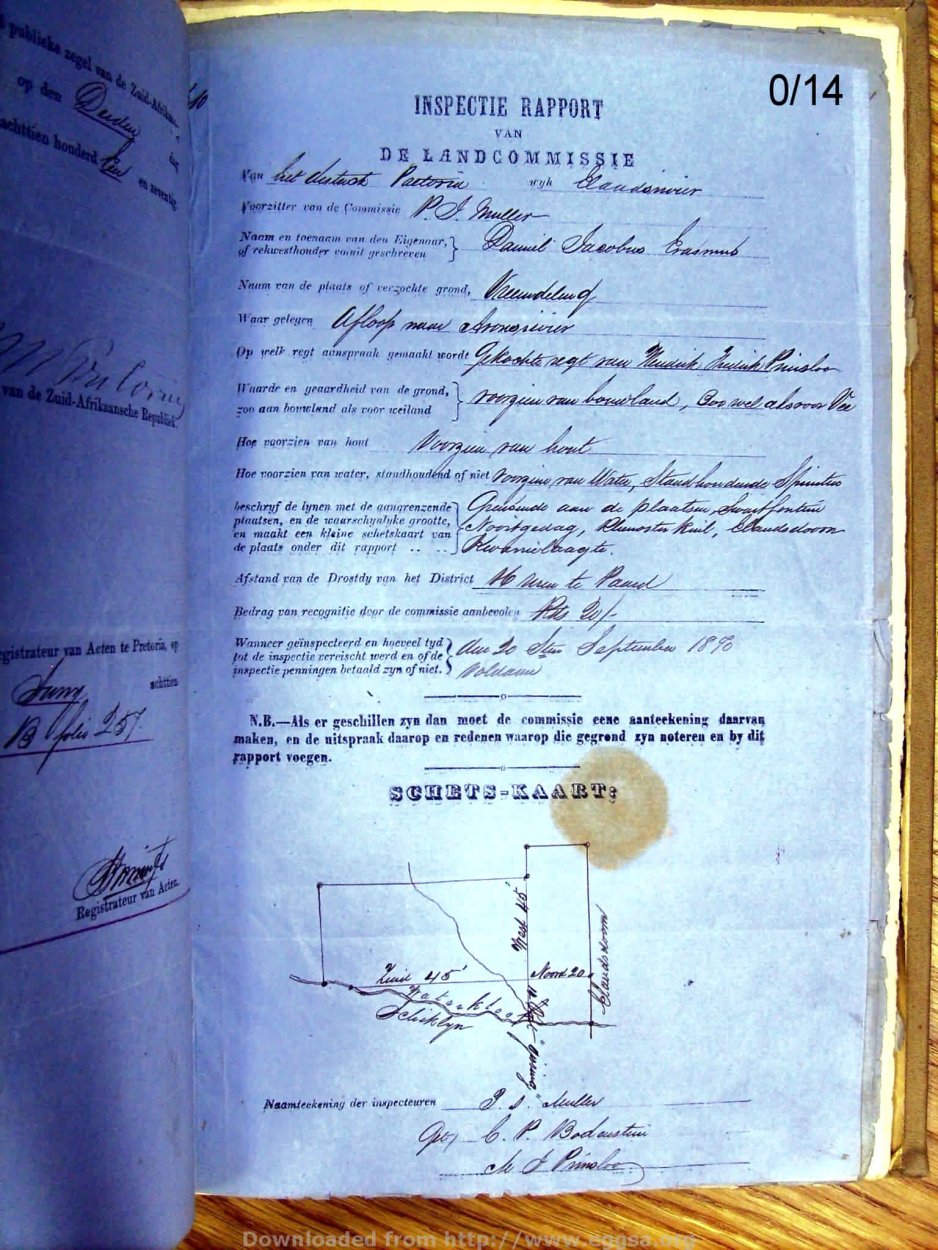 publieke zegel van de Zuid-Afrikaansche
op den Derden dag
achttien honderd Een en zeventig
van de Zuid-Afrikaansche Republiek.
egistrateur van Acten te Pretoria, op
achttien
B folio 257
Registrateur van Acten.
0/14
INSPECTIE RAPPORT
VAN
DE LANDCOMMISSIE
Van het district Pretoria wyk Elandsrivier
Voorzitter van de Commissie P. J. Muller
Naam en toenaam van den Eigenaar, of rekwesthouder voluit geschreven } Daniel Jacobus Erasmus
Naam van de plaats of verzochte grond, Vreemdeling
Waar gelegen Afloop naar
Op welk regt aanspraak gemaakt wordt Gekochte regt van Hendrik Fredrik Prinsloo
Waarde en geaardheid van de grond, zoo aan bouwland als voor weiland } voorzien van bouwland, Zoo wel als voor Vee
Hoe voorzien van hout Voorzien van hout
Hoe voorzien van water, standhoudend of niet voorzien van Water, Standhoudende
beschryf de lynen met de aangrenzende } Grensende aan de plaatsen,
plaatsen, en de waarschynlyke grootte, Rhenoster Kuil, Elandsdoorn
en maakt een kleine schetskaart van
de plaats onder dit rapport .. ..
Afstand van de Drostdy van het District 16 Uren te Paard
Bedrag van recognitie door de commissie aanbevolen Rds 20/-
Wanneer geïnspecteerd en hoeveel tyd } den 20 Sten September 1870
tot de inspectie vereischt werd en of de
inspectie penningen betaald zyn of niet. Voldaan
N.B.—Als er geschillen zyn dan moet de commissie eene aanteekening daarvan
maken, en de uitspraak daarop en redenen waarop die gegrond zyn noteren en by dit
rapport voegen.
SCHETS-KAART:
West 45'
Zuid 45'
Noord 20
Elandsdoorn
Naamteekening der inspecteuren P. J. Muller
Get C. P. Bodenstein
M J Prinsloo
Downloaded from http://www.eggsa.org